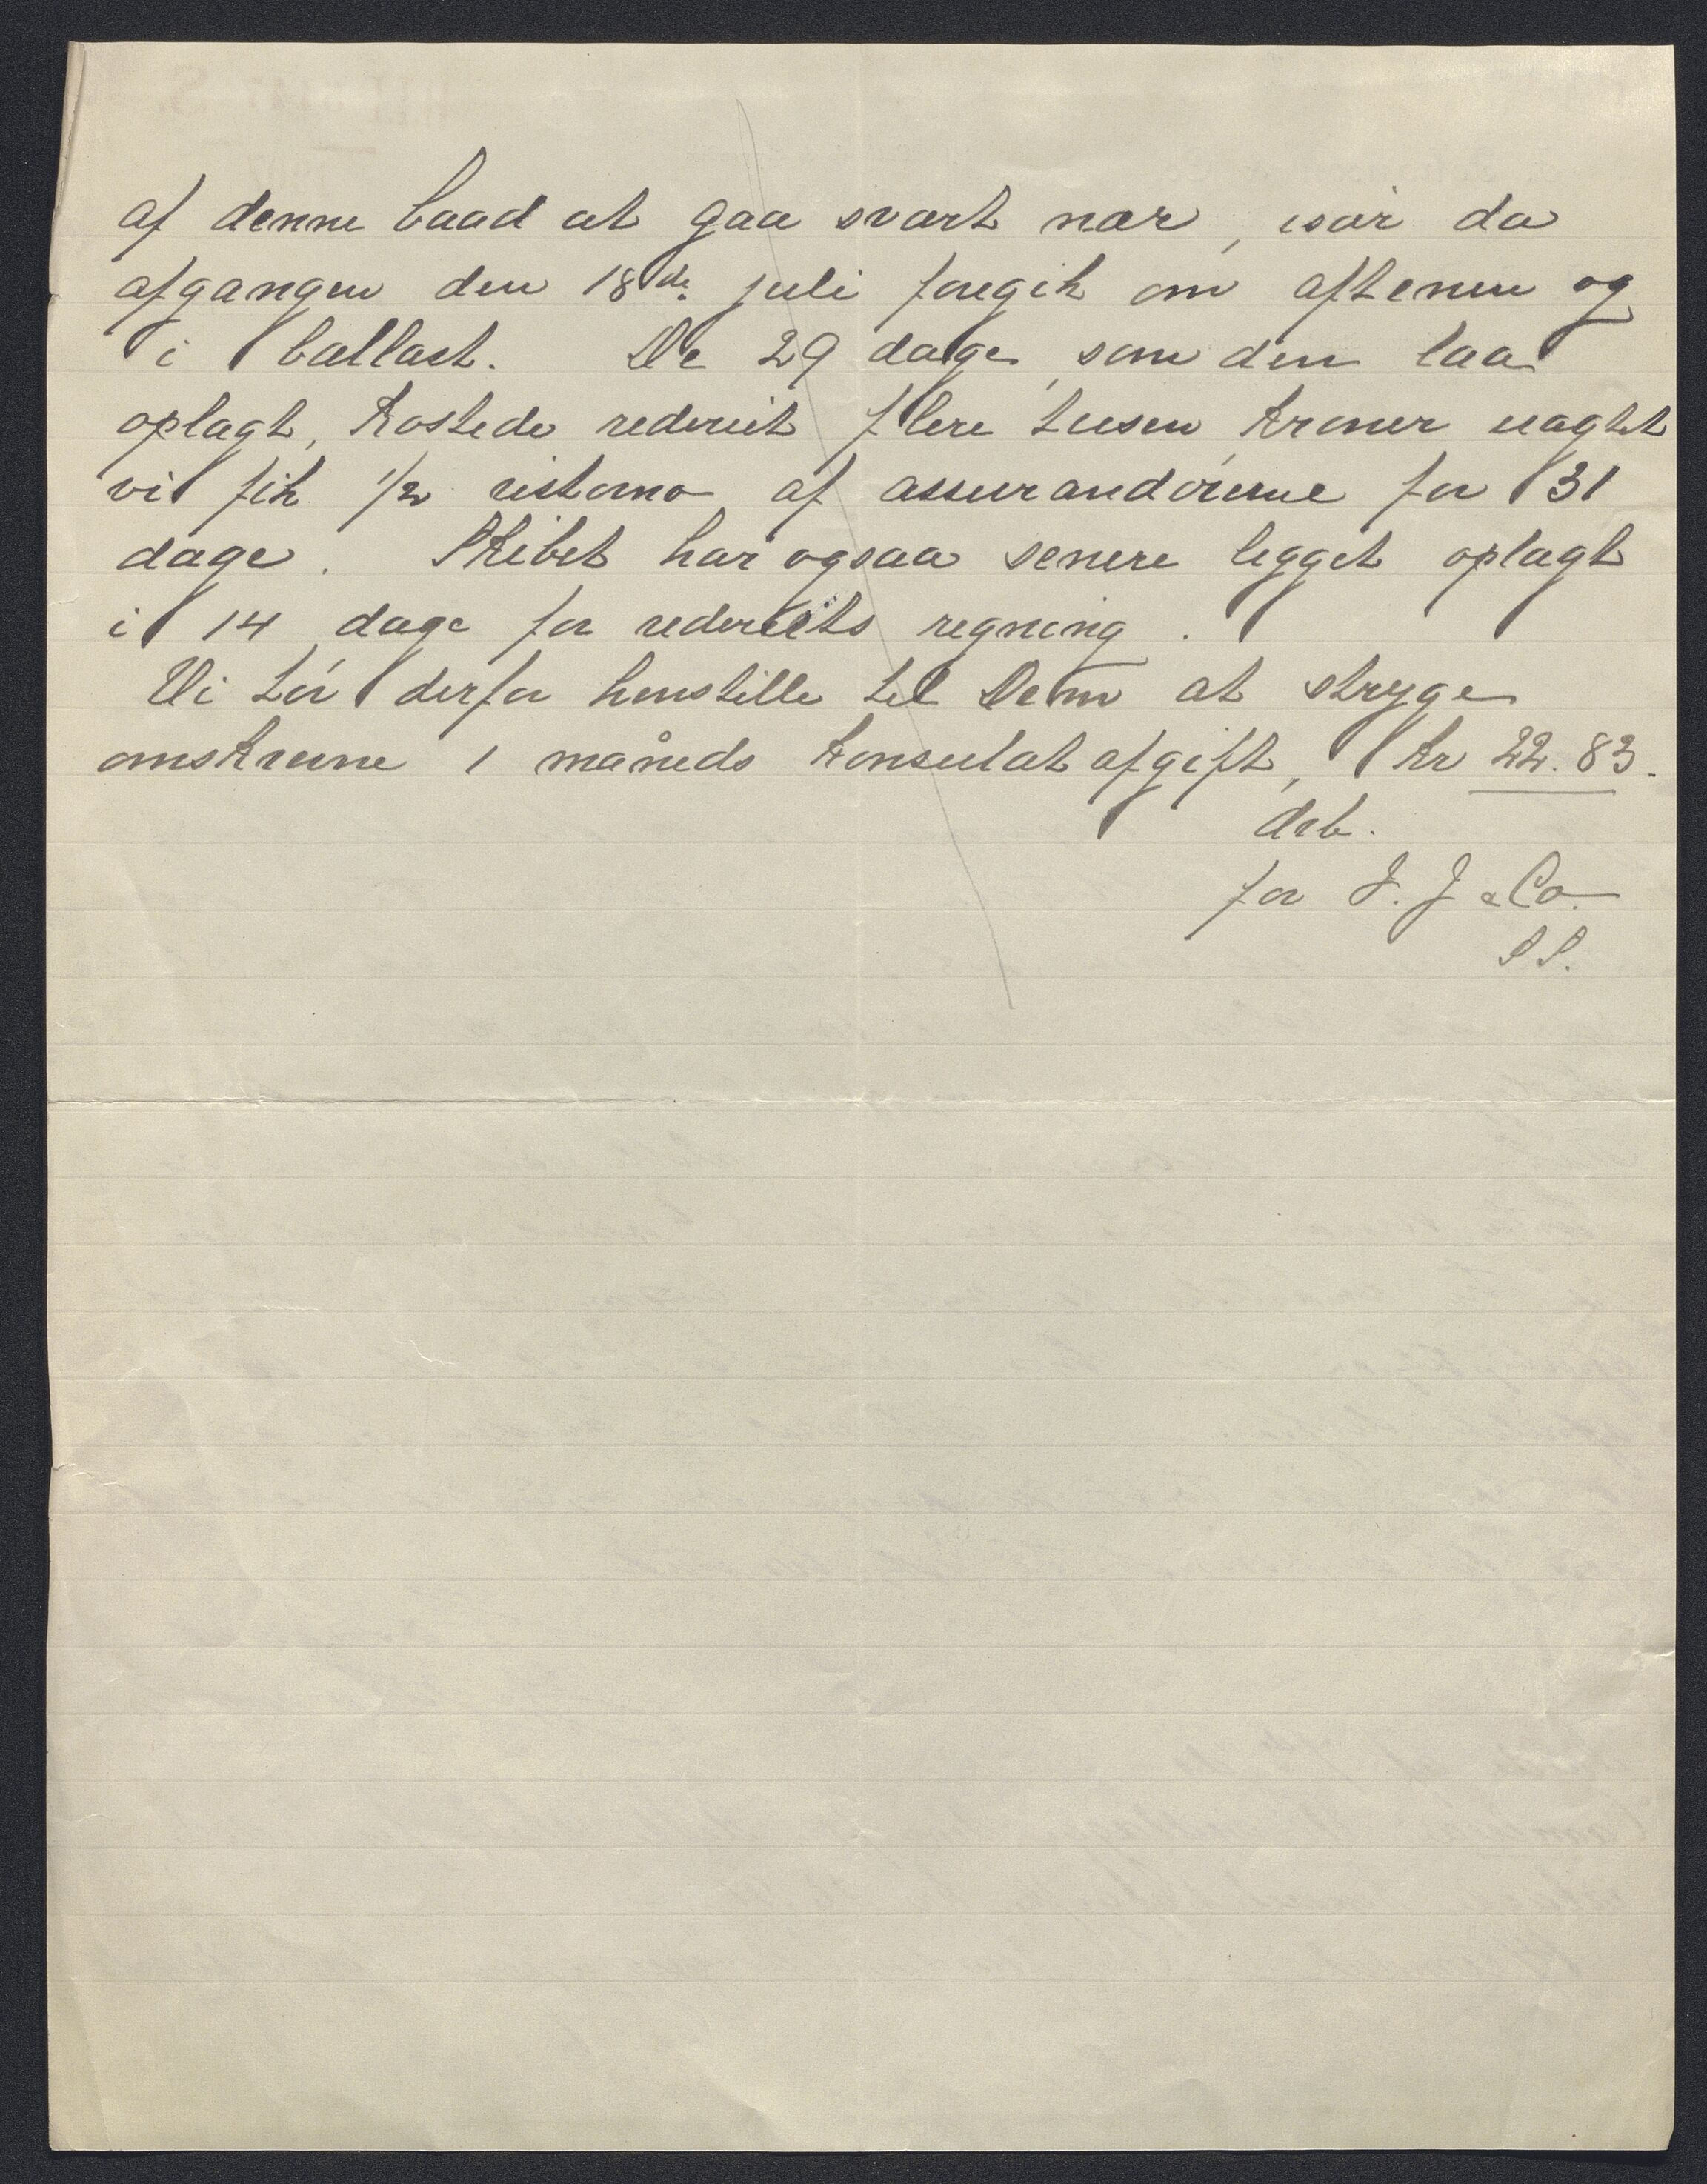 af denne baad at gaa svært nær, især da
afgangen den 18de juli foregik om aftenen og
i ballast. De 29 dage, som den laa
oplagt, kostede rederiet flere tusen kroner uagtet
vi fik 1/2 ristorno af assurandørerne for 31
dage. Skibet har ogsaa senere legget oplagt
i 14 dage for rederiets regning.
Vi tør derfor henstille til Dem at stryge
omskrevne 1 måneds konsulatafgift, kr 22.83.
drb.
for J. J & Co.